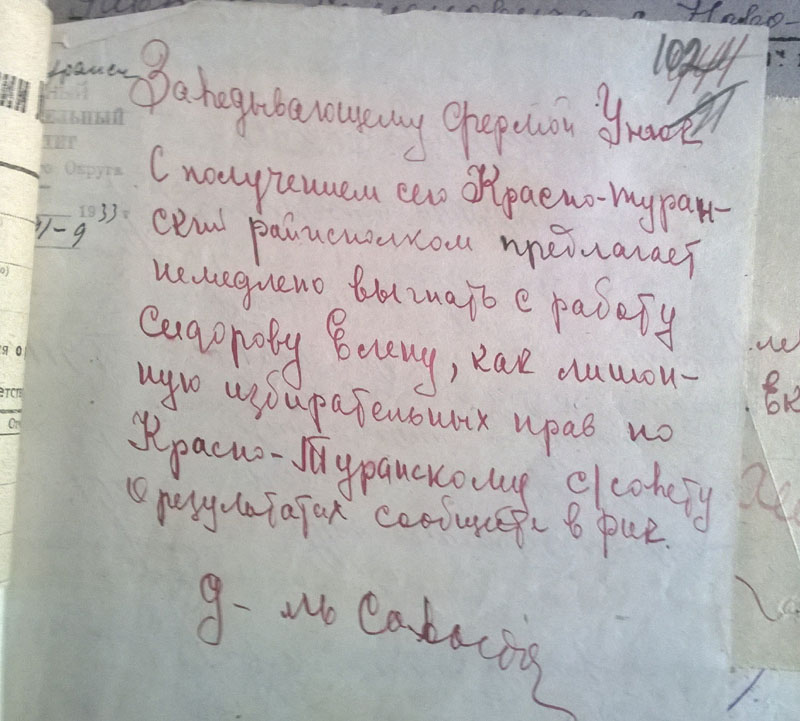 102
Заведывающему фермой Унюк
С получением сего Красно-туран-
ский райисполком предлагает
немедлено выгнать с работу
Сидорову Елену, как лишон-
ную избирательных прав по
Красно-Туранскому с/совету
О результатах сообщите в рик.
ный
ельный
Округа
1933 г